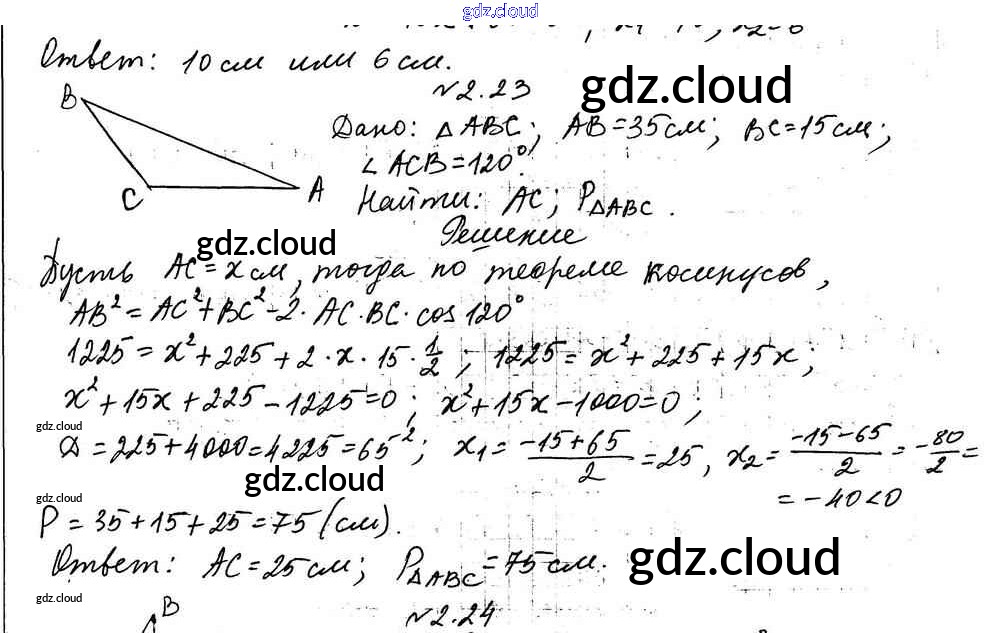 gdz.cloud
Ответ: 10 см или 6 см.
№2.23
gdz.cloud
B
C
A
Дано: △ABC; AB=35см; BC=15см;
∠ACB=120°.
Найти: AC; P△ABC.
Решение
gdz.cloud
Пусть AC=x см, тогда по теореме косинусов,
AB²=AC²+BC²-2·AC·BC·cos120°
1225=x²+225+2·x·15·1/2; 1225=x²+225+15x;
x²+15x+225-1225=0; x²+15x-1000=0;
gdz.cloud
D=225+4000=4225=65²; x₁=(-15+65)/2=25, x₂=(-15-65)/2=-80/2=
gdz.cloud
gdz.cloud
=-40<0
P=35+15+25=75(см).
gdz.cloud
Ответ: AC=25см; P△ABC=75см.
gdz.cloud
B
№2.24